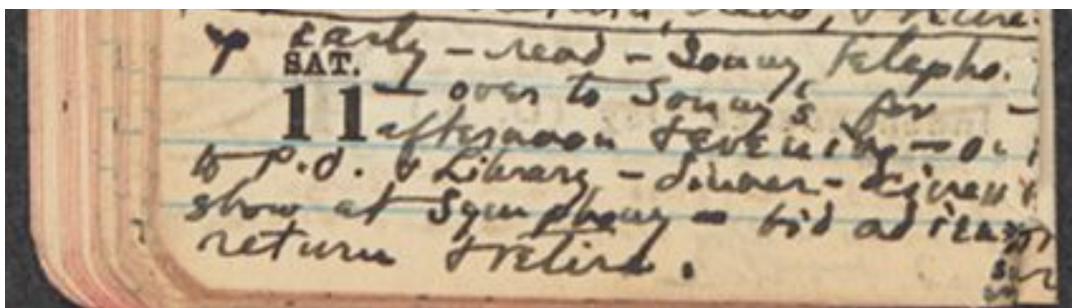 read, & retire.
up early - read - Sonny telepho.
SAT.
11 - over to Sonny's for -
afternoon & evening - ou
to P.O. & Library - dinner -
show at Symphony - bid adieu
return & retire.